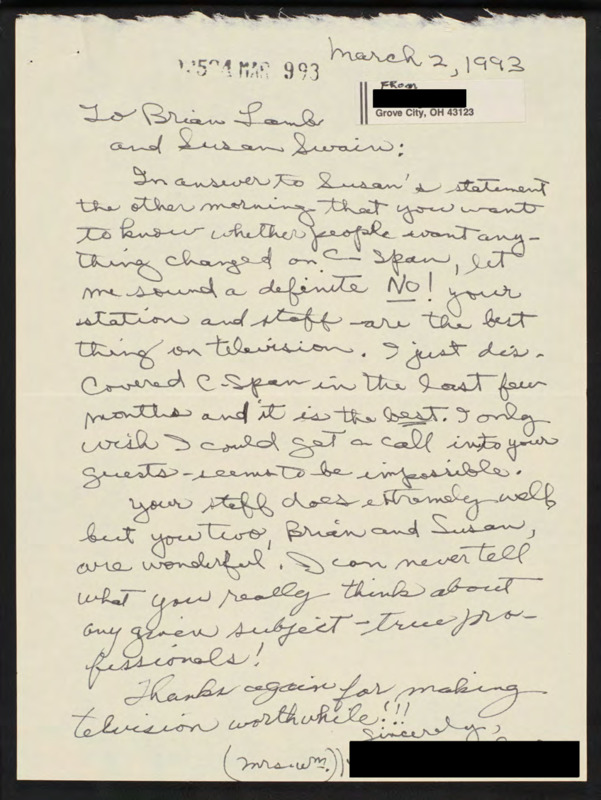 March 2, 1993
4 MAR 993
FROM
Grove City, OH 43123
To Brian Lamb
and Susan Swain:
In answer to Susan's statement
the other morning that you want
to know whether people want any-
thing changed on C-Span, let
me sound a definite NO! your
station and staff are the best
thing on television. I just dis-
covered C-Span in the last few
months and it is the best. I only
wish I could get a call into your
guests-seems to be impossible.
your staff does extremely well
but you two, Brian and Susan,
are wonderful. I can never tell
what you really think about
any given subject-true pro-
fessionals!
Thanks again for making
television worthwhile!!!
Sincerely,
(mrs. wm.)